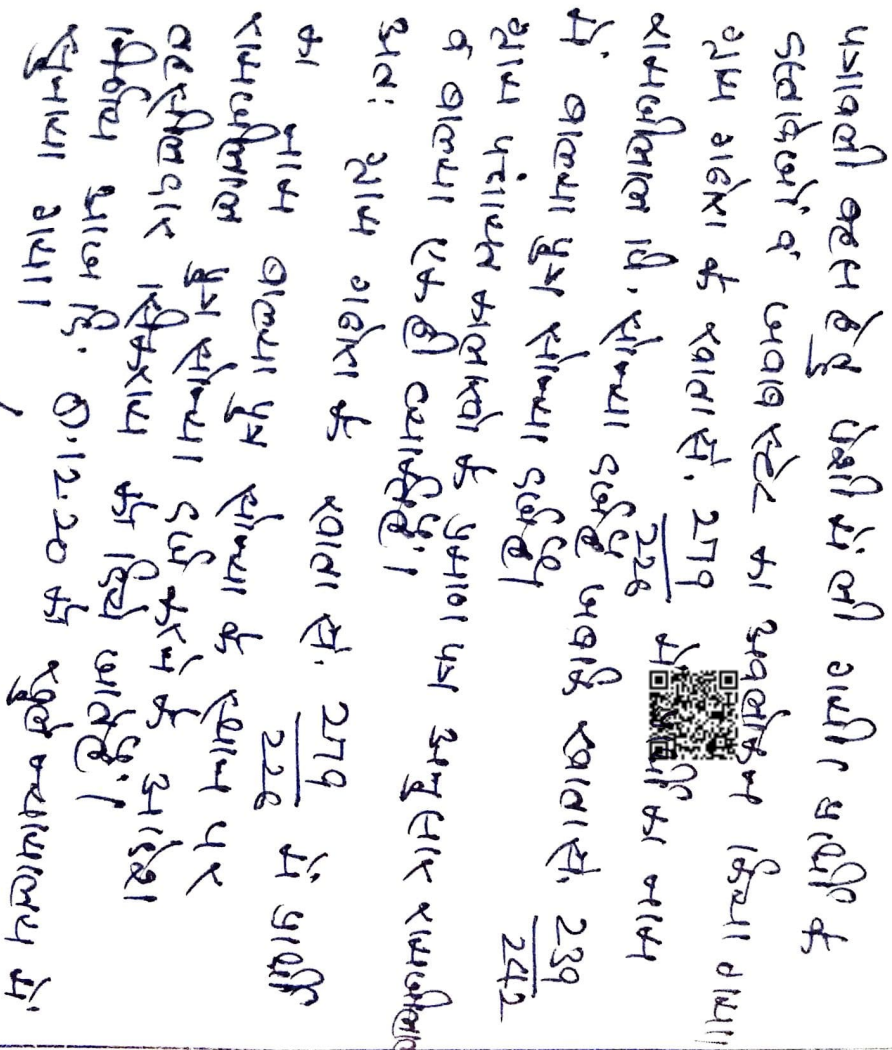 पत्रावली बहस हेतु पेशी में ली गयी। प्रार्थी के
दस्तावेजों व जवाब स्टेट का अवलोकन किया गया।
ग्राम गढेरा के खाता सं. 279/226 में प्रार्थी का नाम
रामजीलाल पि. सोन्या दर्ज है जबकि खाता सं. 239/242
में बाल्या पुत्र सोन्या दर्ज है।
ग्राम पंचायत के प्रमाण पत्र अनुसार रामजीलाल
व बाल्या एक ही व्यक्ति है।
अतः ग्राम गढेरा के खाता सं. 279/226 में प्रार्थी
का नाम बाल्या पुत्र सोन्या के स्थान पर
रामजीलाल पुत्र सोन्या दर्ज करने के आदेश
तहसीलदार को दिये जाते है।
निर्णय आज दि. 12.20 को खुले न्यायालय में
सुनाया गया।